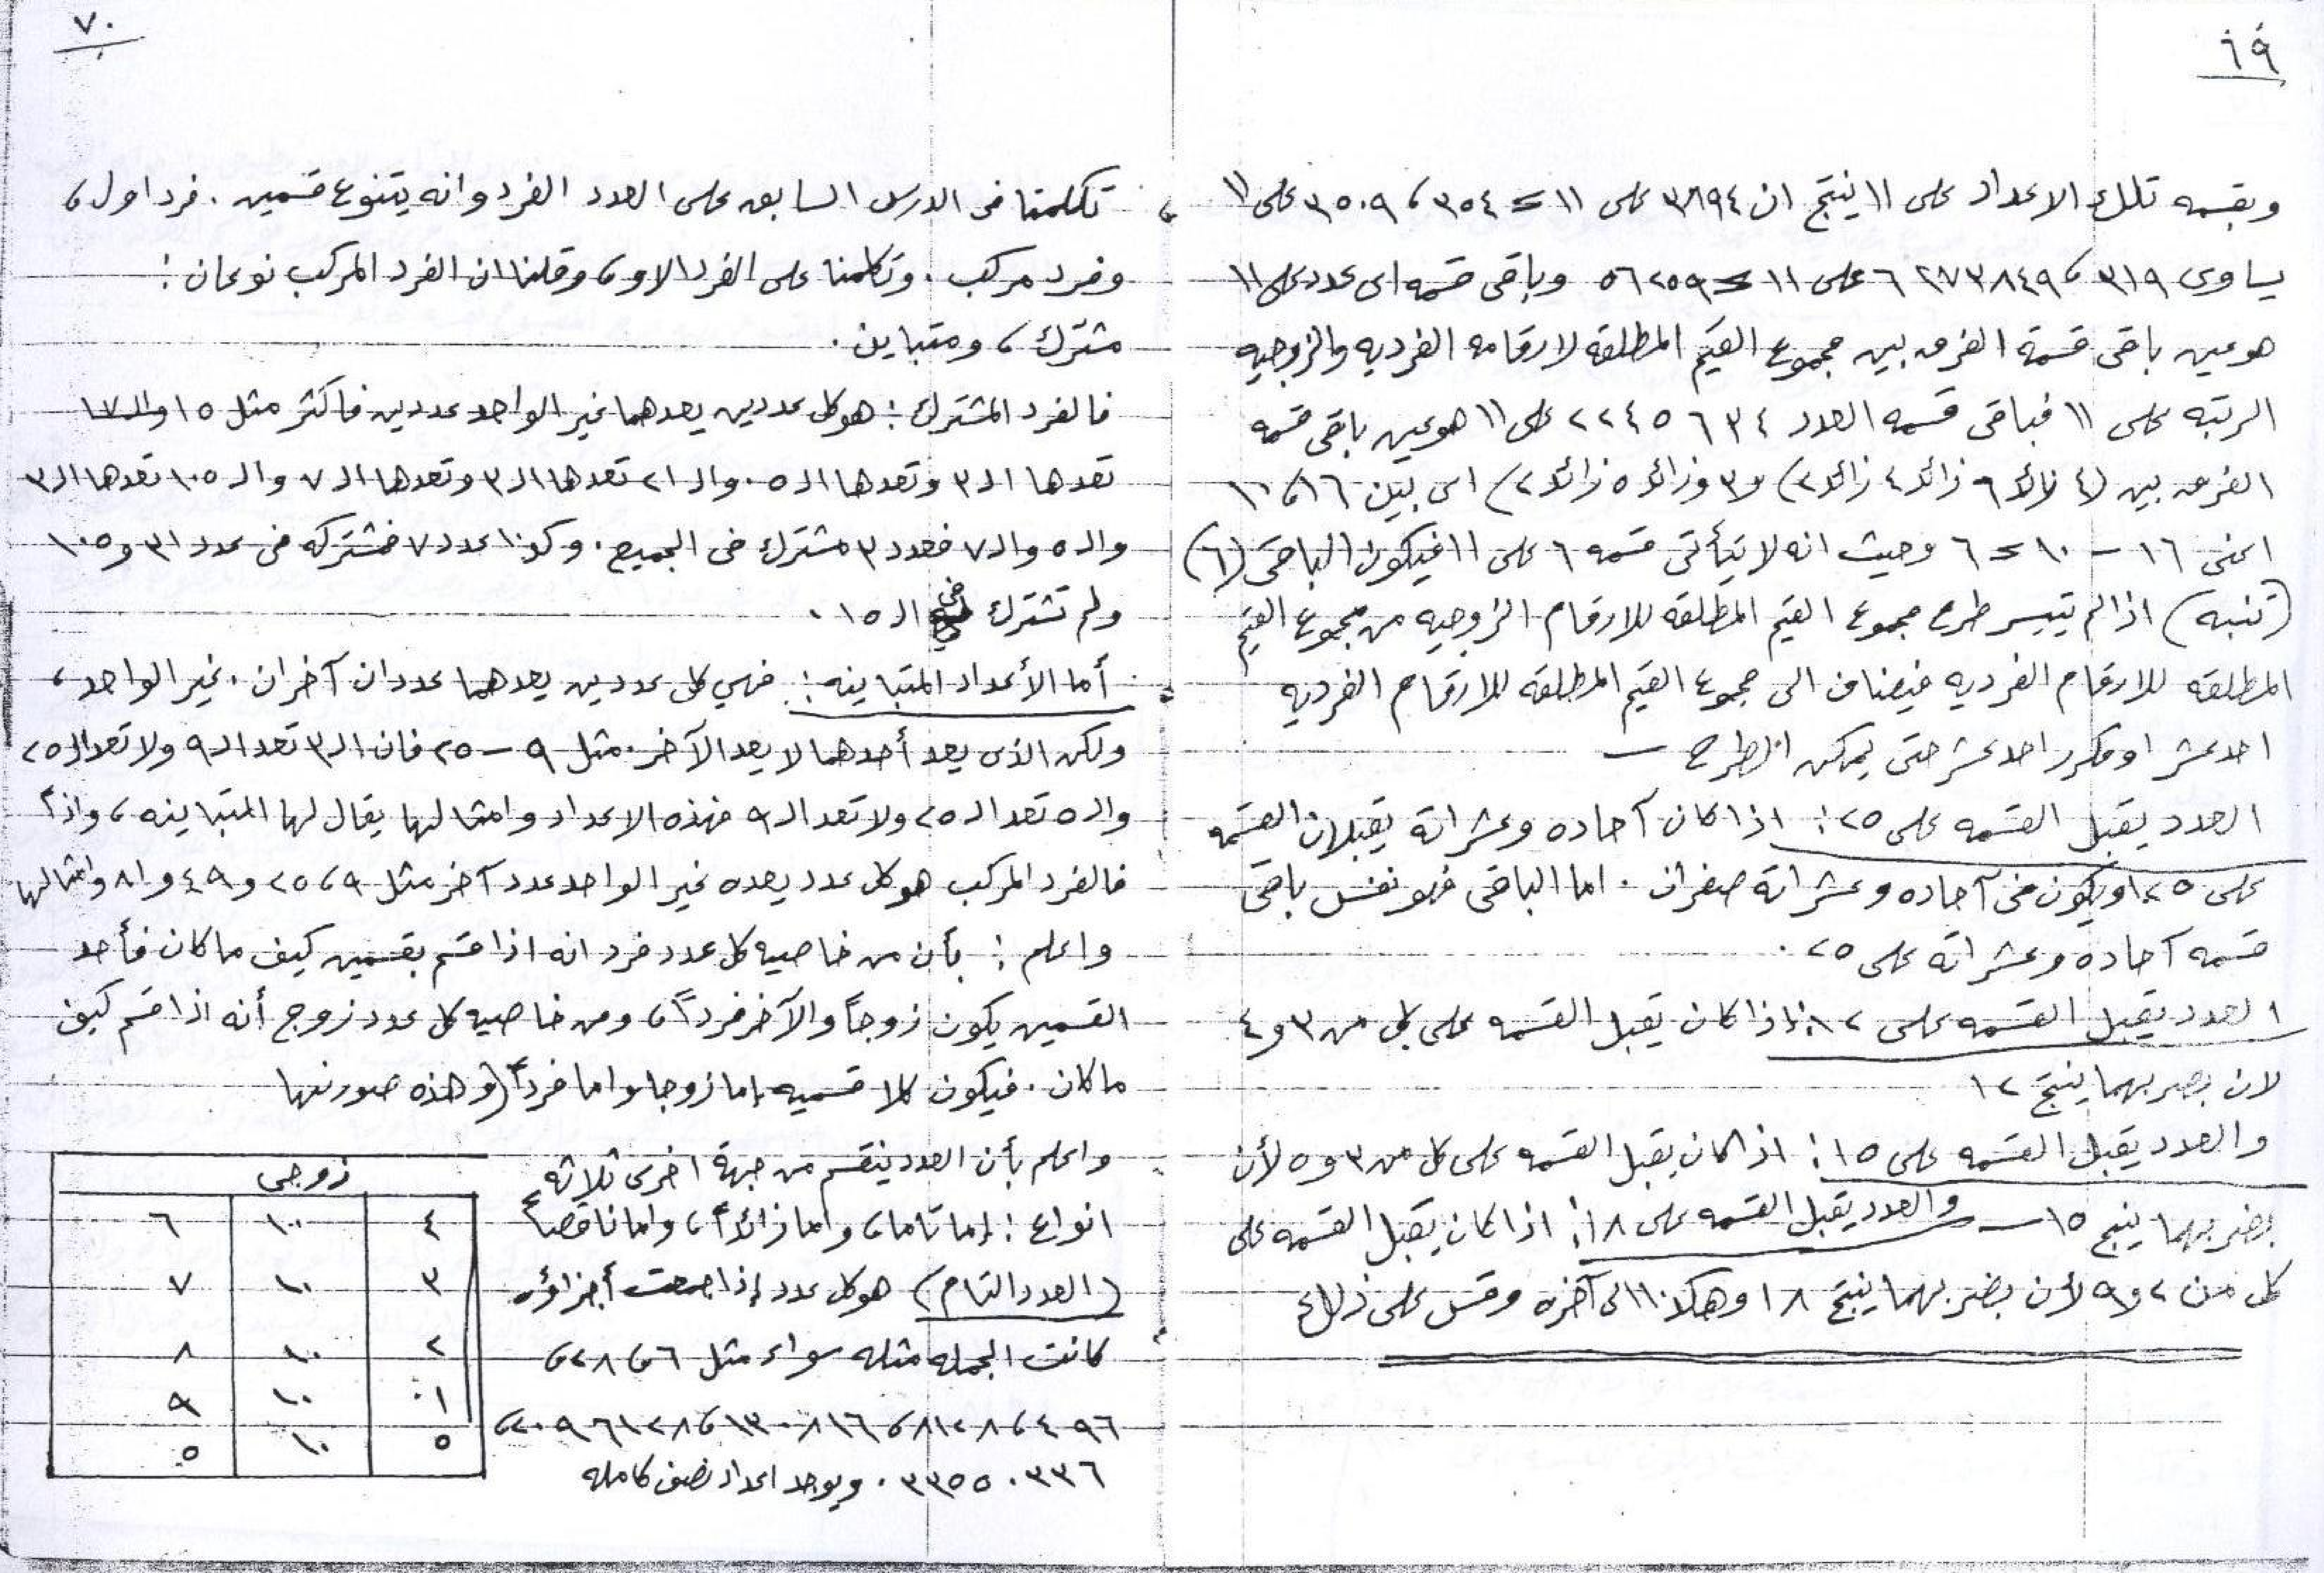 ٦٩
وبقسمه تلك الاعداد على ١١ ينتج ان ٣٨٩٤ على ١١ = ٣٥٤ ، ٣٥٠٩ على ١١
يساوى ٣١٩ ، ٦٢٧٣٨٤٩ على ١١ = ٥٦٢٥٩ وباقى قسمه اى عدد على ١١
هو عين باقى قسمة الفرق بين مجموع القيم المطلقه لارقامه الفرديه والزوجيه
الرتبه على ١١ فباقى قسمه العدد ٢٢٤٥٦٣٤ على ١١ هو عين باقى قسمه
الفرق بين (٤ زائد ٦ زائد ٤ زائد ٢) و ٣ وزائد ٥ زائد ٢) اى بين ١٦ ، ١٠
اعنى ١٦ - ١٠ = ٦ وحيث انه لا يتأتى قسمه ٦ على ١١ فيكون الباقى (٦)
(تنبه) اذا لم يتيسر طرح مجموع القيم المطلقه للارقام الزوجيه من مجموع القيم
المطلقه للارقام الفرديه فيضاف الى مجموع القيم المطلقه للارقام الفرديه
احد عشر او مكرر احد عشر حتى يمكن الطرح —
العدد يقبل القسمه على ٢٥ : اذا كان آحاده وعشراته يقبلان القسمه
على ٢٥ او يكون فى آحاده وعشراته صفران . اما الباقى فهو نفس باقى
قسمه آحاده وعشراته على ٢٥ .
العدد يقبل القسمه على ١٢ : اذا كان يقبل القسمه على كل من ٣ و ٤
لان بضربهما ينتج ١٢
والعدد يقبل القسمه على ١٥ : اذا كان يقبل القسمه على كل من ٣ و ٥ لأن
بضربهما ينتج ١٥ — والعدد يقبل القسمه على ١٨ : اذا كان يقبل القسمه على
كل من ٢ و ٩ لأن بضربهما ينتج ١٨ وهكذا الى آخره وقس على ذلك
٧٠
تكلمنا فى الدرس السابق على العدد الفرد وانه يتنوع قسمين . فرد اول ،
وفرد مركب . وتكلمنا على الفرد الاول ، وقلنا ان الفرد المركب نوعان :
مشترك ، ومتباين .
فالفرد المشترك : هو كل عددين يعدهما غير الواحد عددين فاكثر مثل ١٥ والـ ١٧
تعدها الـ ٣ وتعدها الـ ٥ . والـ ٢١ تعدها الـ ٣ وتعدها الـ ٧ والـ ١٠٥ تعدها الـ ٣
والـ ٥ والـ ٧ فعدد ٣ مشترك فى الجميع . وكذا عدد ٧ فمشتركه فى عدد ٣١ و ١٠٥
ولم تشترك فى الـ ١٥ .
أما الأعداد المتباينه : فهي كل عددين يعدهما عددان آخران . غير الواحد ،
ولكن الذى يعد أحدهما لا يعد الآخر . مثل ٩ — ٢٥ فان الـ ٣ تعد الـ ٩ ولا تعد الـ ٢٥
والـ ٥ تعد الـ ٢٥ ولا تعد الـ ٩ فهذه الاعداد وامثالها يقال لها المتباينه ، واذاً
فالفرد المركب هو كل عدد يعده غير الواحد عدد آخر مثل ٩ ، ٢٥ و ٤٩ و ٨١ وامثالها
واعلم : بأن من خاصيه كل عدد فرد انه اذا قسم بقسمين كيف ما كان فأحد
القسمين يكون زوجاً والآخر فرداً ، ومن خاصيه كل عدد زوج أنه اذا قسم كيف
ما كان . فيكون كلا قسميه إما زوجا واما فرداً (وهذه صورتها
واعلم بأن العدد ينقسم من جهة اخرى ثلاثه
انواع : إما تاما ، واما زائداً ، واما ناقصاً
(العدد التام) هو كل عدد إذا جمعت أجزاؤه
كانت الجمله مثله سواء مثل ٦ ، ٢٨ ،
٤٩٦ ، ٨١٢٨ ، ١٣٠٨١٦ ، ٢٠٩٦١٢٨ ،
٣٣٥٥٠٣٣٦ . ويوجد اعداد نصف كامله
زوجى
٤ ١٠ ٦
٣ ١٠ ٧
٢ ١٠ ٨
١ ١٠ ٩
٥ ١٠ ٥